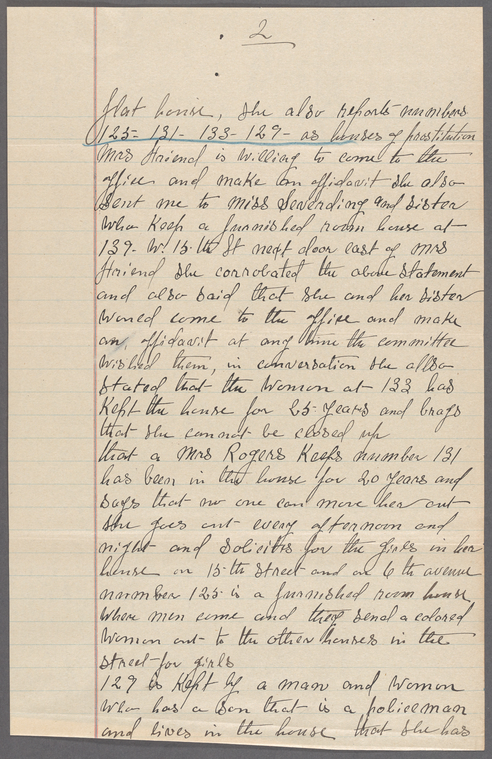 2
flat house, she also reports numbers
125- 131- 133- 129- as houses of prostitution
Mrs Friend is willing to come to the
office and make an affidavit she also
sent me to Miss Severding and Sister
who keep a furnished room house at
139. W. 15th St next door east of Mrs
Friend she corrobated the above statement
and also said that she and her sister
would come to the office and make
an affidavit at any time the committee
wished them, in conversation she allso
stated that the woman at 133 has
kept the house for 25 years and brags
that she cannot be closed up
that a Mrs Rogers keeps number 131
has been in the house for 20 years and
says that no one can move her out
she goes out every afternoon and
night and solicits for the girls in her
house on 15th Street and on 6th avenue
number 125 is a furnished room house
where men come and they send a colored
woman out to the other houses in the
street for girls
129 is kept by a man and woman
who has a son that is a policeman
and lives in the house that she has